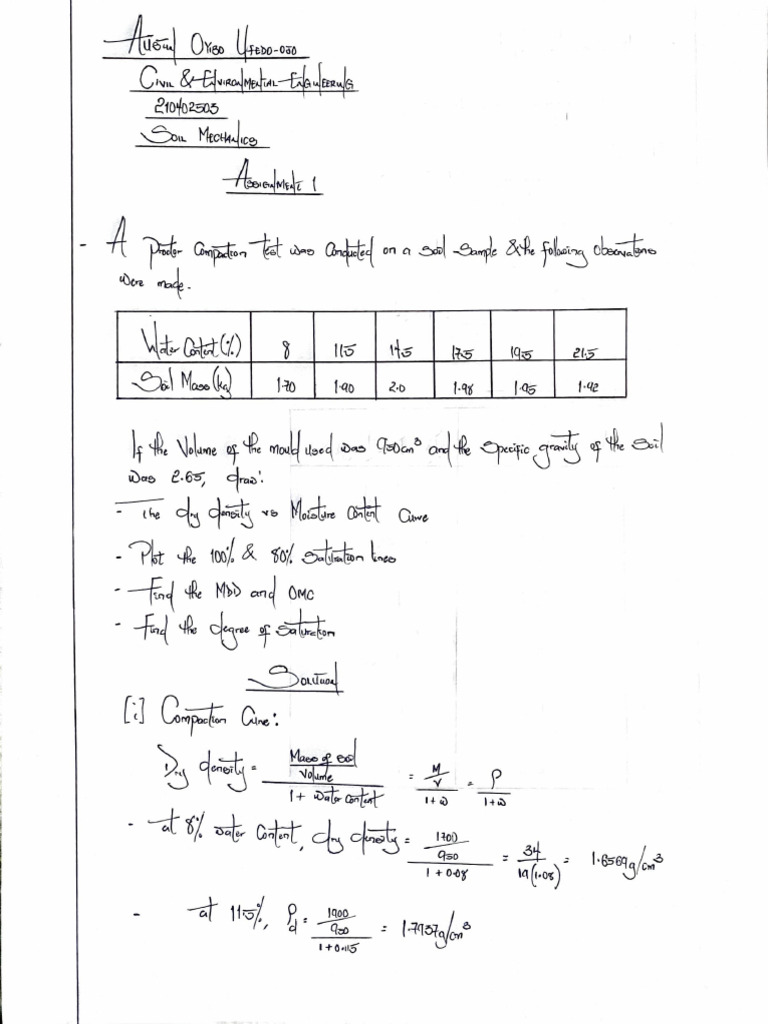 Oyibo Ufedo-ojo
Civil & Environmental Engineering
210402503
Soil Mechanics
Assignment 1
- A Proctor Compaction test was Conducted on a Soil Sample & the following Observations
were made.
Water Content (%) 8 11.5 14.5 17.5 19.5 21.5
Soil Mass (kg) 1.70 1.90 2.0 1.98 1.95 1.92
If the Volume of the mould used was 950cm³ and the Specific gravity of the Soil
was 2.65, draw:
- The dry density vs Moisture Content Curve
- Plot the 100% & 80% Saturation lines
- Find the MDD and OMC
- Find the degree of Saturation
Solution
[i] Compaction Curve:
Dry density = Mass of soil / Volume / 1 + water content = M / V / 1 + w = ρ / 1 + w
- at 8% water Content, dry density = 1700 / 950 / 1 + 0.08 = 34 / 19(1.08) = 1.6569g/cm³
- at 11.5%, ρd = 1900 / 950 / 1 + 0.115 = 1.7937g/cm³